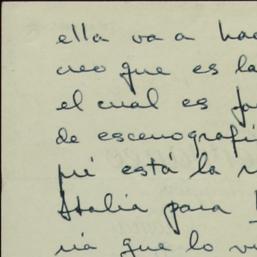 ella va a hac
creo que es la
el cual es fa
de escenografí
pé está la r
Italia para
ría que lo v